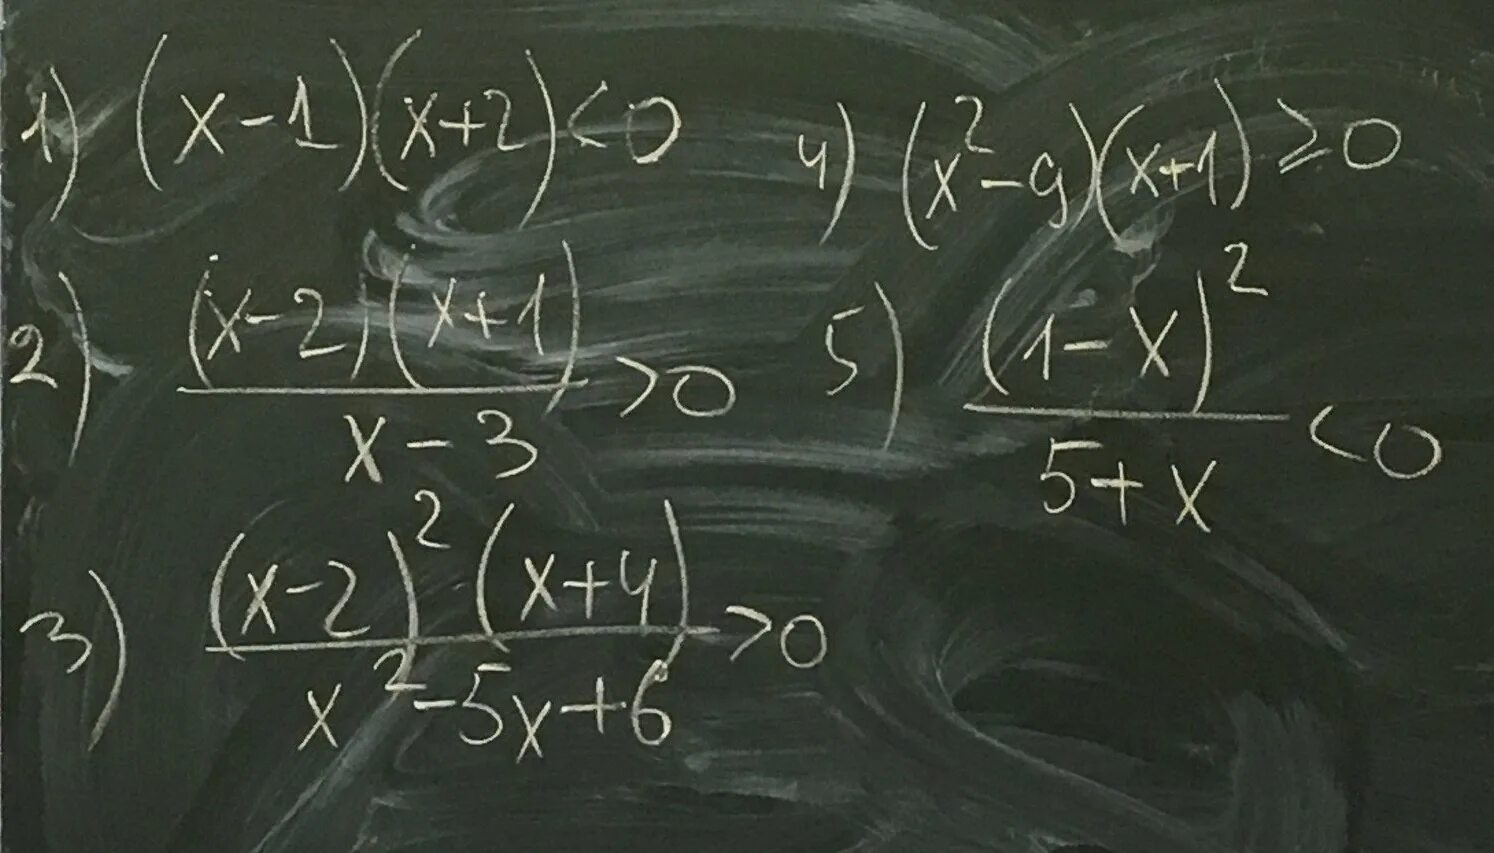 1) (x-1)(x+2)<0
2) (x-2)(x+1)
x-3
>0
3) (x-2)² (x+4)
x²-5x+6
>0
4) (x²-9)(x+1)≥0
5) (1-x)²
5+x
<0